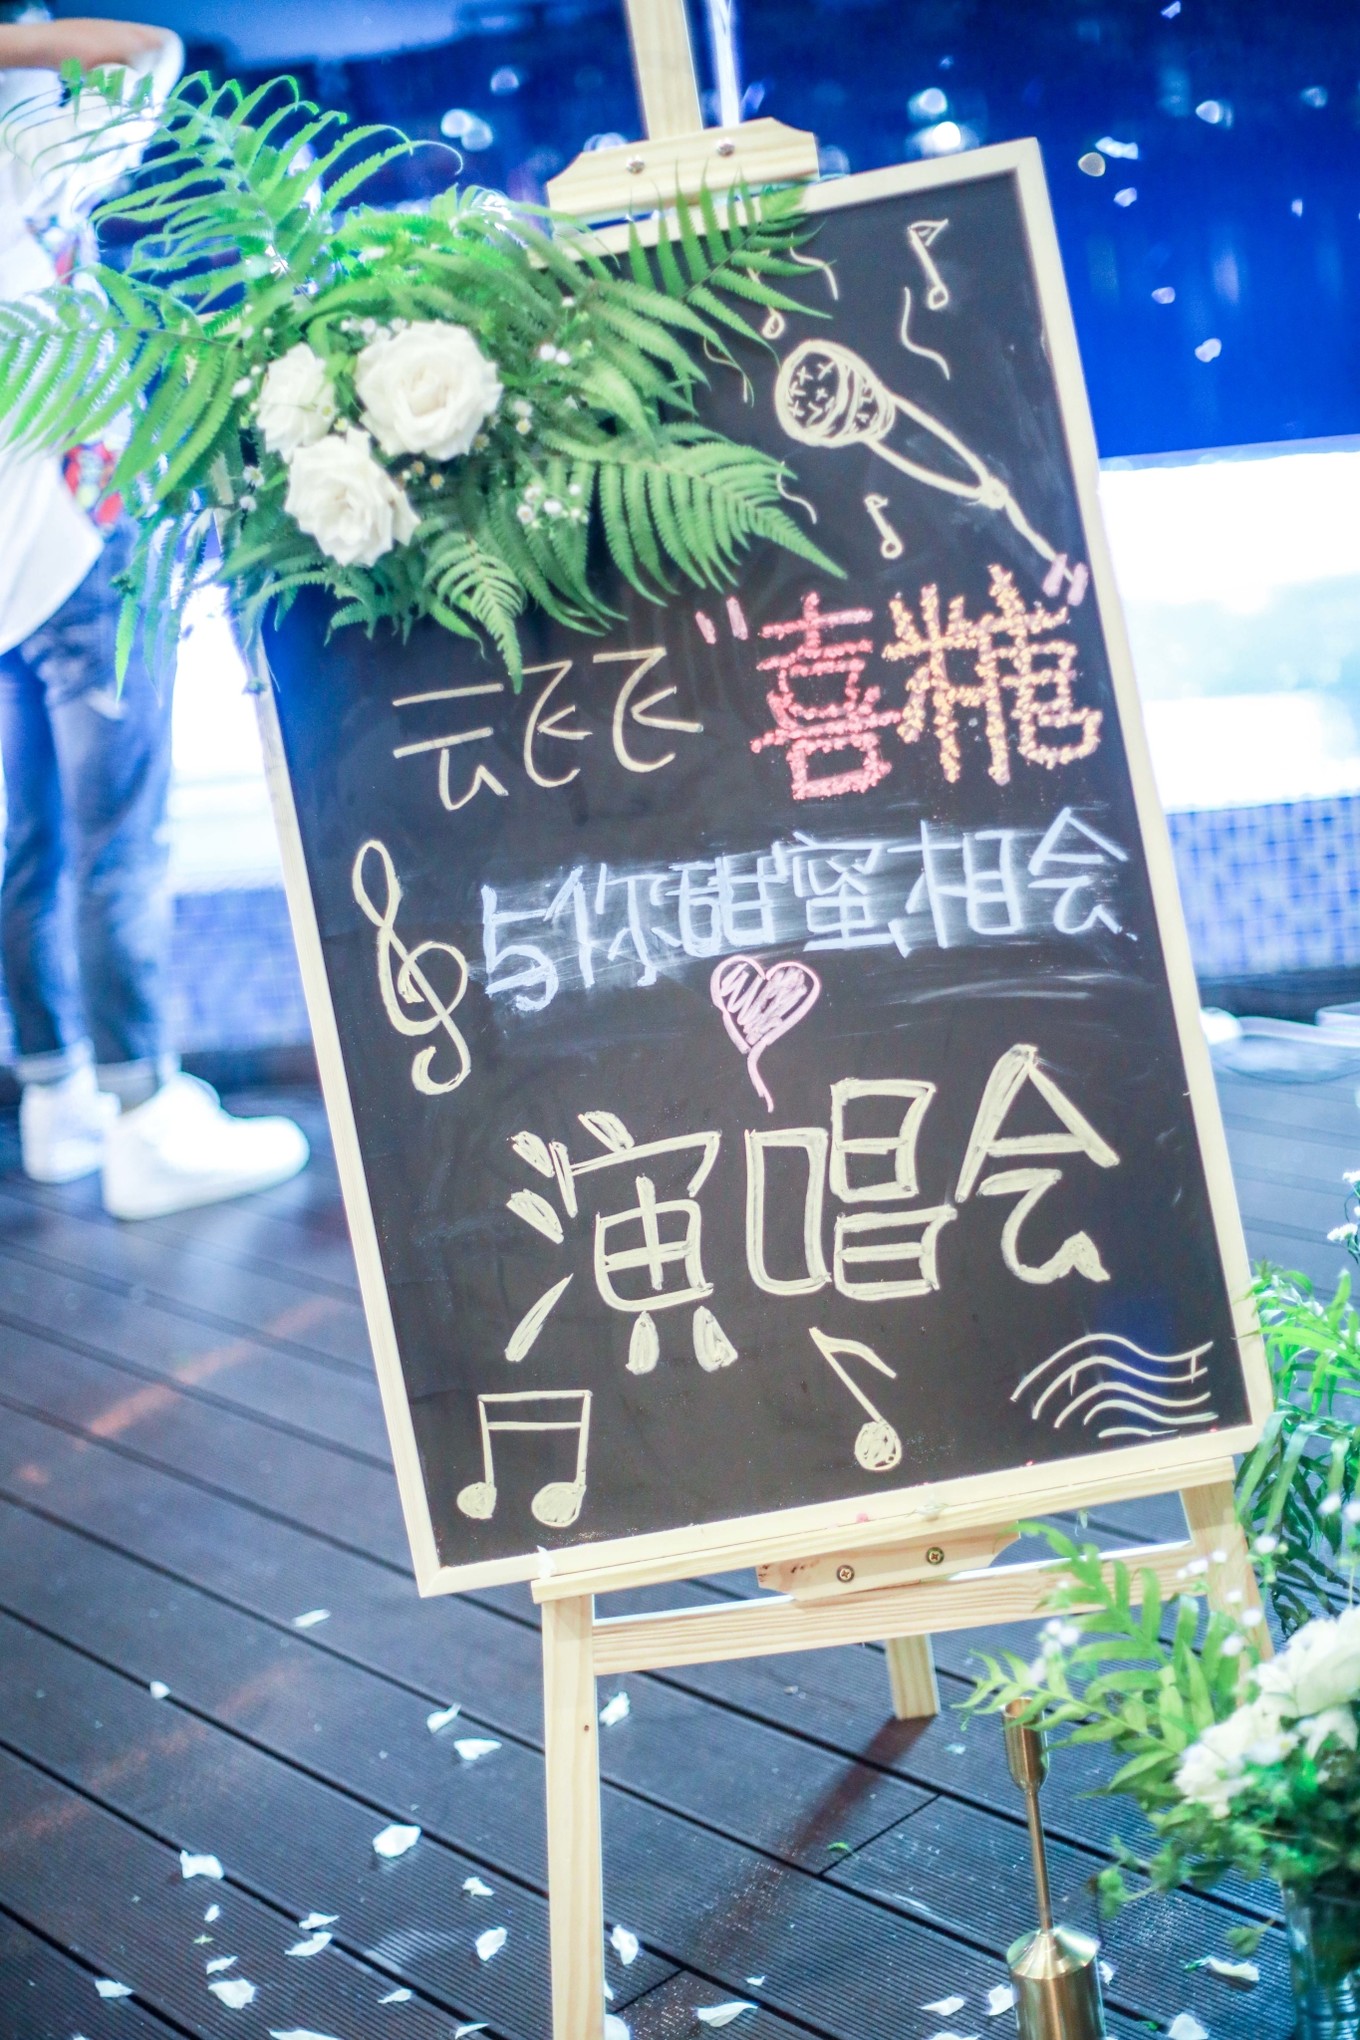 云飞飞"喜糖"
与你甜蜜相会
演唱会